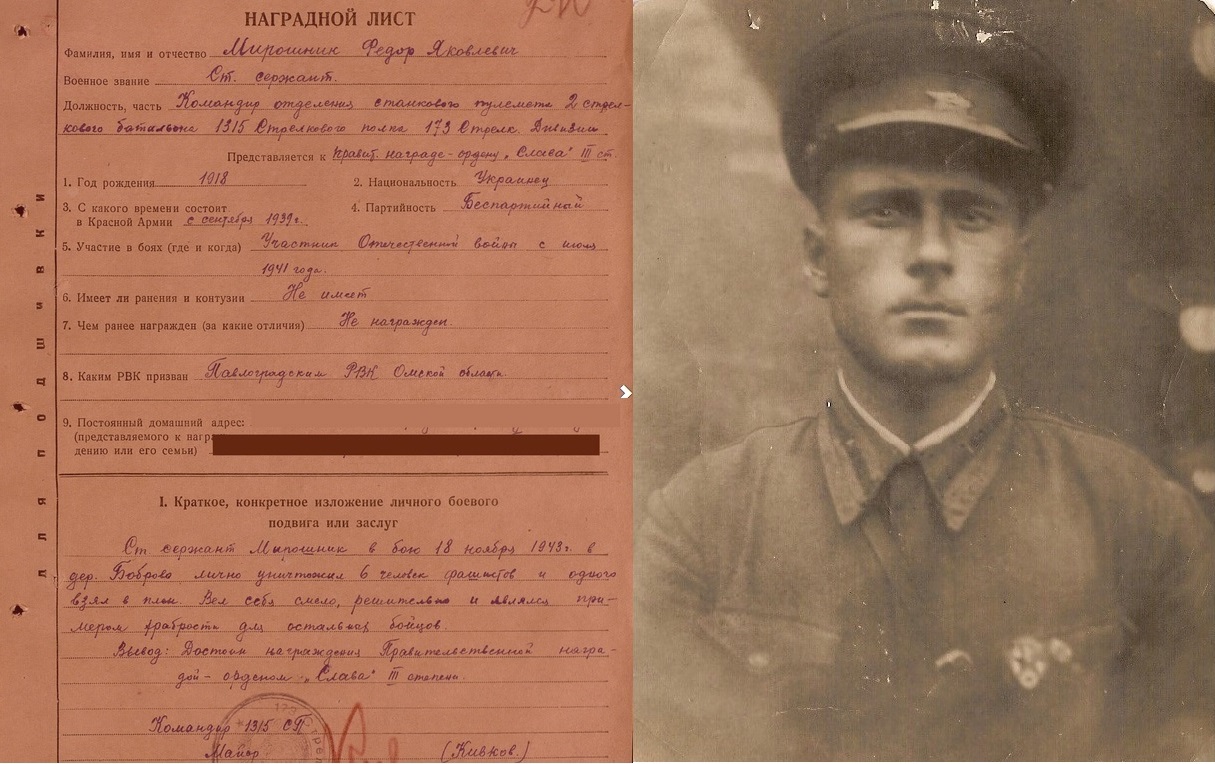 НАГРАДНОЙ ЛИСТ
Фамилия, имя и отчество Мирошник Федор Яковлевич
Военное звание Ст. сержант.
Должность, часть Командир отделения станкового пулемета 2 стрел-
кового батальона 1315 Стрелкового полка 173 Стрелк. Дивизии
Представляется к правит. награде - ордену „Слава" III ст.
1. Год рождения 1918 2. Национальность Украинец
3. С какого времени состоит в Красной Армии с сентября 1939г. 4. Партийность Беспартийный
5. Участие в боях (где и когда) Участник Отечественной войны с июля
1941 года.
6. Имеет ли ранения и контузии Не имеет
7. Чем ранее награжден (за какие отличия) Не награжден.
8. Каким РВК призван Павлоградским РВК Омской области.
9. Постоянный домашний адрес:
(представляемого к
дению или его семьи)
I. Краткое, конкретное изложение личного боевого
подвига или заслуг
Ст сержант Мирошник в бою 18 ноября 1943г. в
дер. Боброво лично уничтожил 6 человек фашистов и одного
взял в плен. Вел себя смело, решительно и являлся при-
мером храбрости для остальных бойцов.
Вывод: Достоин награждения Правительственной награ-
дой - орденом „Слава" III степени.
Командир 1315 СП
Майор (Кивков.)
ДЛЯ ПОДШИВКИ